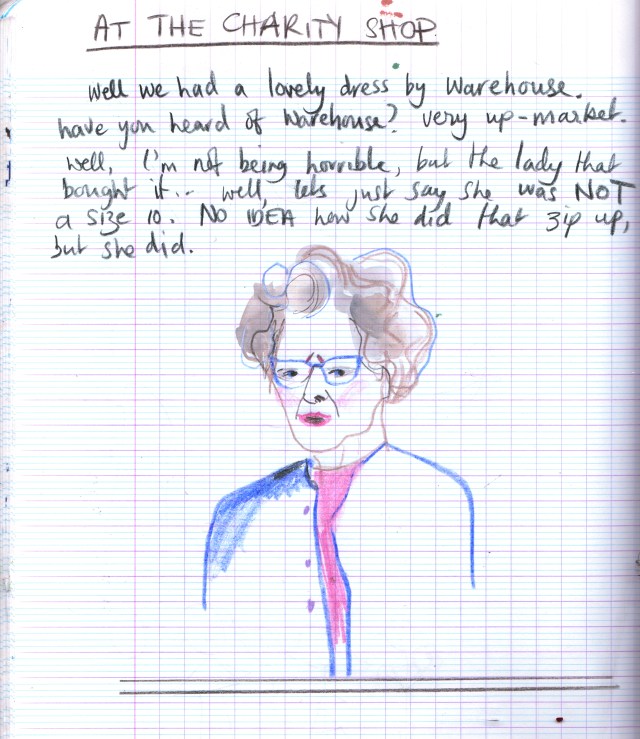 AT THE CHARITY SHOP
Well we had a lovely dress by Warehouse.
have you heard of Warehouse? very up-market.
Well, I'm not being horrible, but the lady that
bought it... well, lets just say she was NOT
a size 10. NO IDEA how she did that zip up,
but she did.